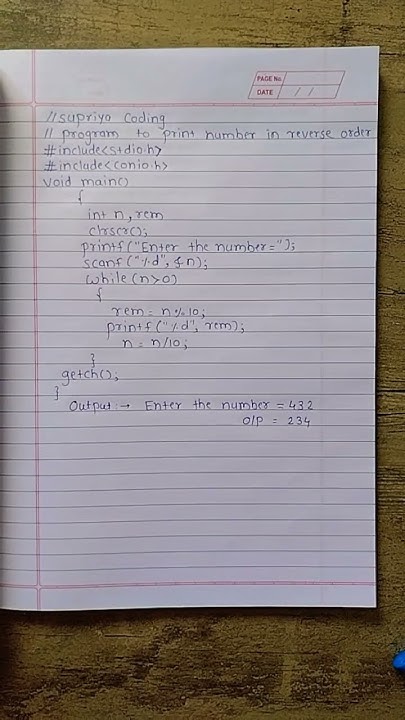 PAGE No.
DATE / /
//supriyo Coding
// program to print number in reverse order
#include<stdio.h>
#include<conio.h>
void main()
{
int n, rem
clrscr();
printf("Enter the number=");
scanf("%d", &n);
while(n>0)
{
rem = n%10;
printf("%d", rem);
n = n/10;
}
getch();
}
Output:→ Enter the number = 432
O/P = 234